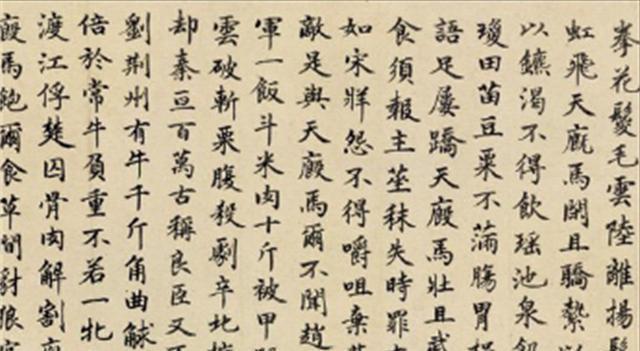 拳花毛雲陸離揚
虹飛天廐馬閑且驕縶
以鑣渴不得飲瑤池泉
瓊田苗豆粟不滿腸胃
語足屢蹻天廄馬壯且武
食須報主莝秣失時罪
如宋牂怨不得嚼咀棄
敵足與天廄馬爾不聞趙
軍一飯斗米肉十斤被甲
雲破斬粟腹殺劇辛北
却秦亘百萬古稱良臣又
劉荊州有牛千斤角曲觩
倍於常牛負重不若一牝
渡江俘楚囚骨肉解割
廄馬飽爾食草豺狼